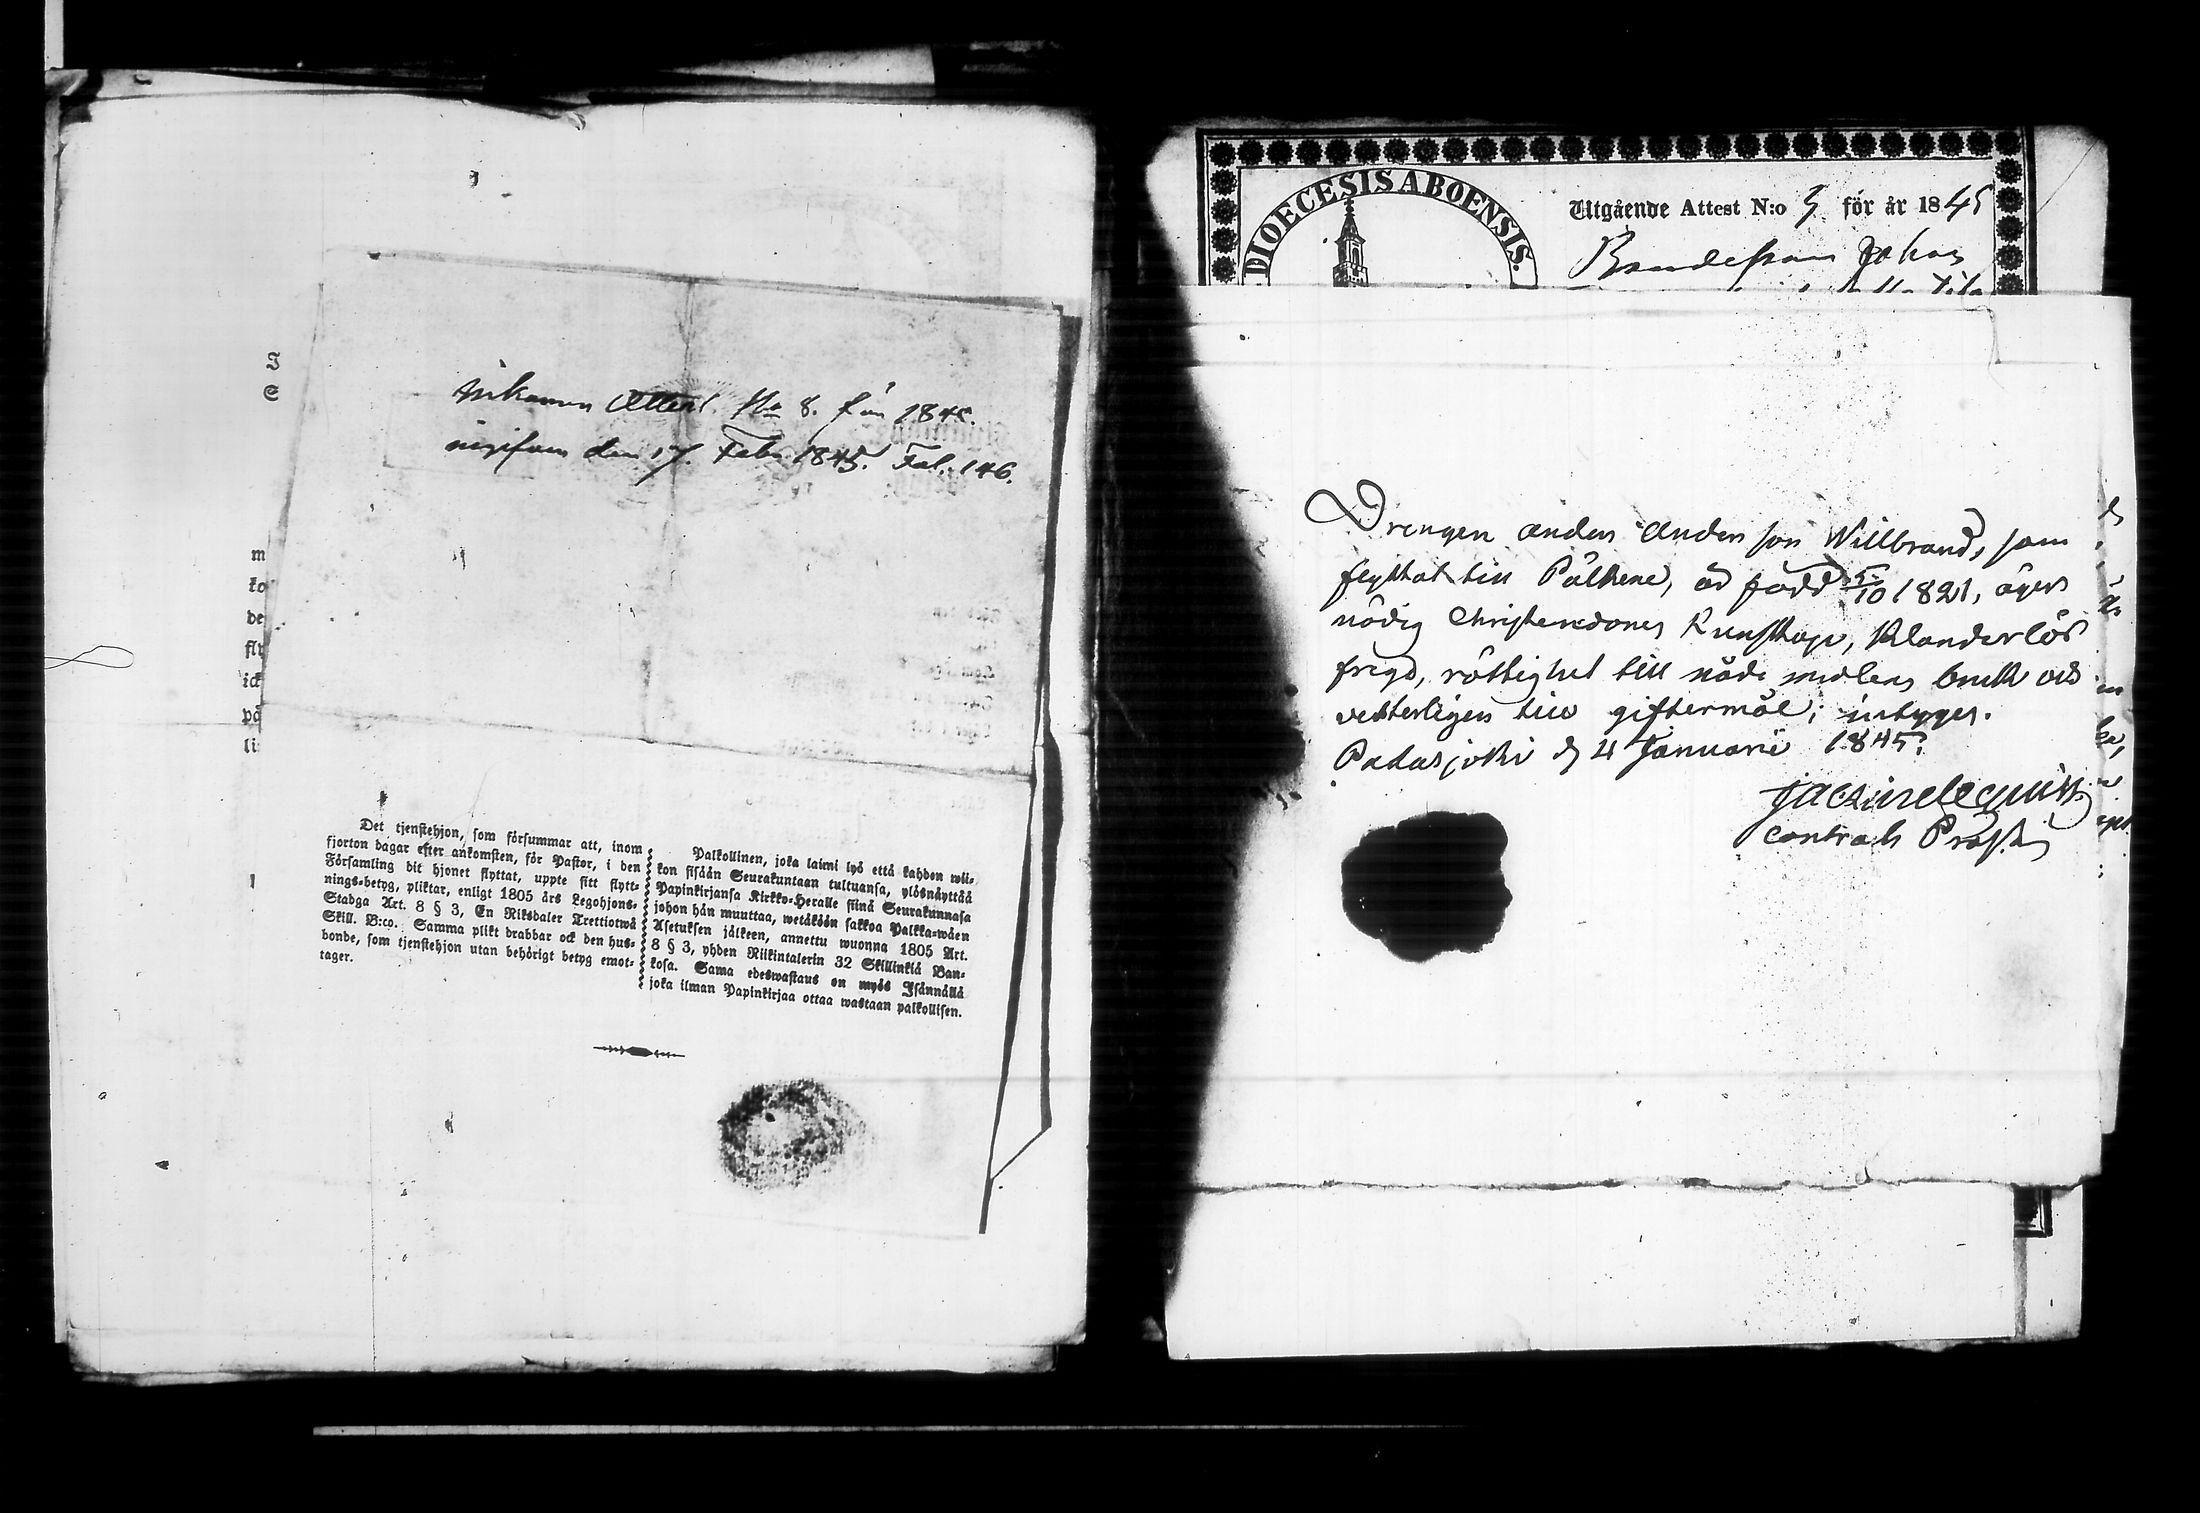 Inkommen Attest. No 8. för 1845.
ingifven den 17. Febr. 1845. Fol. 146.
I
S
m
ko
de
fly
ick
på
li
Det tjenstehjon, som försummar att, inom
fjorton dagar efter ankomsten, för Pastor, i den
Församling dit hjonet flyttat, uppte sitt flytt-
nings-betyg, pliktar, enligt 1805 års Legohjons-
Stadga Art. 8 § 3, En Riksdaler Trettiotwå
Skill. B:co. Samma plikt drabbar ock den hus-
bonde, som tjenstehjon utan behörigt betyg emot-
tager.
Palkollinen, joka laimi lyö että kahden wii-
kon sisään Seurakuntaan tultuansa, ylösnäyttää
Papinkirjansa Kirkko-Heralle siinä Seurakunnasa
johon hän muuttaa, wetäköön sakkoa Palkka-wäen
Asetuksen jälkeen, annettu wuonna 1805 Art.
8 § 3, yhden Riikintalerin 32 Skillinkiä Ban-
kosa. Sama edeswastaus on myös Isännällä
joka ilman Papinkirjaa ottaa wastaan palkollisen.
DIOECESIS ABOENSIS.
Utgående Attest N:o 5 för år 1845
Johan
Drengen Anders Anders son Willbrand, som
flyttat till Pälkene, är född 5/10 1821, äger
nödig Christendoms Kunskap, klanderlös
frejd, rättighet till nåde medlens bruk och
veterligen till giftermål; intygas.
Padasjoki d 4 Januarii 1845.
contracts Prost